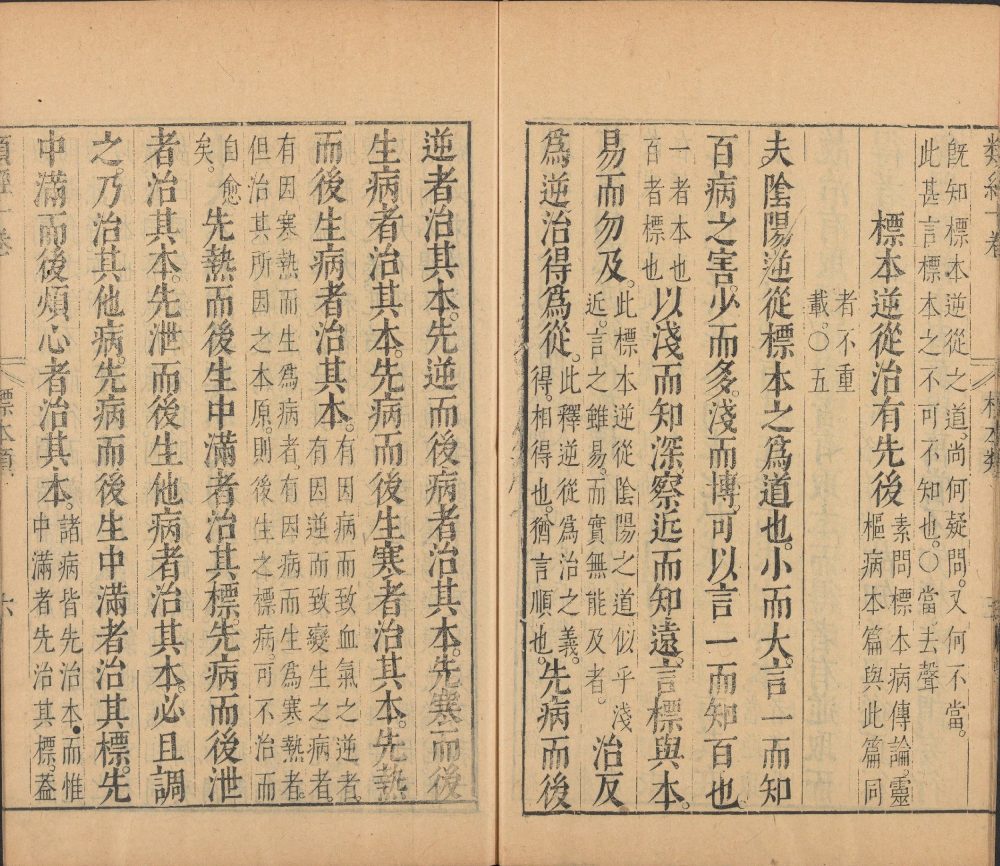 既知標本逆從之道。尚何疑問。又何不當。
此甚言標本之不可不知也。〇當。去聲
標本逆從治有先後
素問標本病傳論。靈
樞病本篇與此篇同
者不重
載。〇五
夫陰陽逆從標本之爲道也。小而大。言一而知
百病之害。少而多。淺而博。可以言一而知百也。
一者本也
百者標也
以淺而知深。察近而知遠。言標與本。
易而勿及。
此標本逆從陰陽之道。似乎淺
近。言之雖易。而實無能及者。
治反
爲逆。治得爲從。
此釋逆從爲治之義。
得。相得也。猶言順也。
先病而後
逆者治其本。先逆而後病者治其本。先寒而後
生病者治其本。先病而後生寒者治其本。先熱
而後生病者治其本。
有因病而致血氣之逆者。
有因逆而致變生之病者。
有因寒熱而生爲病者。有因病而生爲寒熱者。
但治其所因之本原。則後生之標病。可不治而
自愈
矣。
先熱而後生中滿者治其標。先病而後泄
者治其本。先泄而後生他病者治其本。必且調
之。乃治其他病。先病而後生中滿者治其標。先
中滿而後煩心者治其本。
諸病皆先治本。而惟
中滿者先治其標。蓋
類經十卷
標本類
六